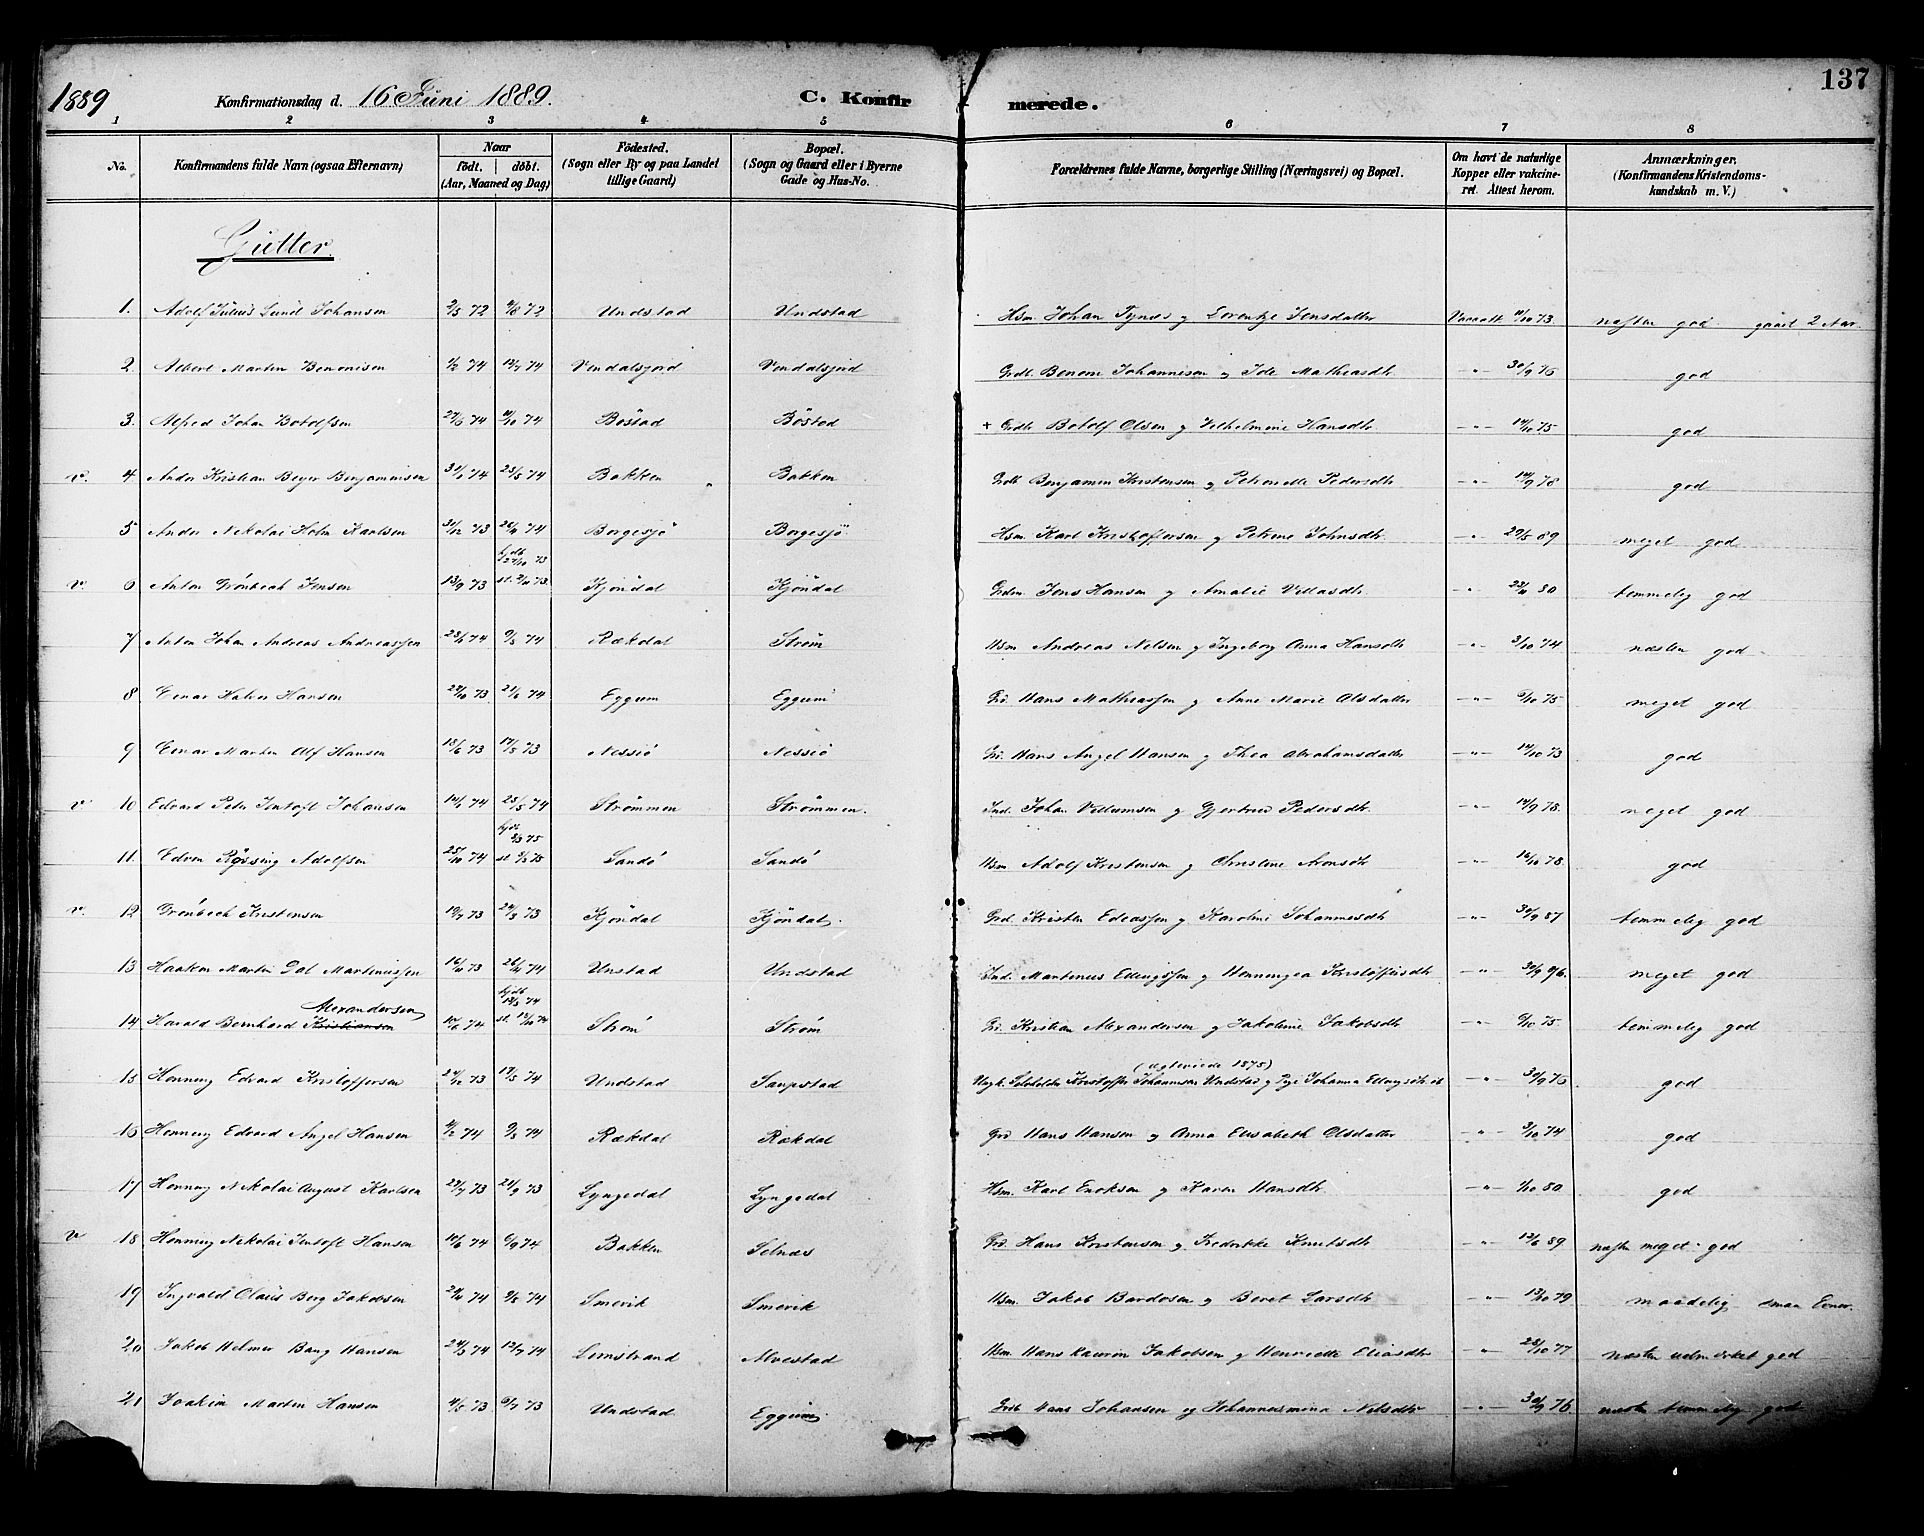 1889 Konfirmationsdag d. 16 Juni 1889. C. Konfirmerede. 137
1 2 3 4 5 6 7 8
No. Konfirmandens fulde Navn (ogsaa Efternavn) Naar födt. döbt. (Aar, Maaned og Dag) Födested. (Sogn eller By og paa Landet tillige Gaard) Bopæl. (Sogn og Gaard eller i Byerne Gade og Hus-No. Forældrenes fulde Navne, borgerlige Stilling (Næringsvei) og Bopæl. Om havt de naturlige Kopper eller vakcineret. Attest herom. Anmærkninger. (Konfirmandens Kristendomskundskab m. V.)
Gutter.
1. Adolf Julius Lund Johansen 2/5 72 72 Undstad Undstad Hsm. Johan Tynæs og Lorentze Jensdatter 73. næsten god. gaaet 2 Aar.
2. Albert Martin Benonisen 1/2 74 12/7 74 Vendalsjord Vendalsjord Grdb. Benoni Johannisen og Ide Mathiasdtr. 30/9 75 god
3. Alfred Johan Botolfsen 27/5 74 11/10 74 Böstad Böstad + Grdb. Botolf Olsen og Vilhelmine Hansdtr. 14/10 75 god
v. 4 Ander Kristian Beyer Benjaminsen 31/1 74 25/5 74 Bakken Bakken Grdb Benjamin Kristensen og Petronelle Pedersdtr 14/9 78 god
5 Ander Nikolai Holm Karlsen 31/12 73 26/4 74 Borgesjö Borgesjö Hsm. Karl Kristoffersen og Petrine Johnsdtr. 29/5 89 meget god
v. 6 Anton Grönbech Jensen 13/9 73 hjdb 27/10 73 st. 2/11 73. Kjöndal Kjöndal Grdm. Jens Hansen og Amalie Villasdtr. 80 temmelig god
7 Anton Johan Andreas Andreassen 23/1 74 9/3 74 Rækdal Ström Hsm Andreas Nilsen og Ingeborg Anna Hansdtr 3/10 74 næsten god
8 Einar Halvor Hansen 29/10 73 21/6 74 Eggum Eggum Grd. Hans Mathiassen og Anne Marie Olsdatter 6/10 75 meget god
9 Einar Martin Alf Hansen 73 73 Nessjö Nessjö Grd. Hans Angel Hansen og Thea Abrahamsdatter 14/10 73 god
v 10 Edvard Peter Jentoft Johansen 14/1 74 25/5 74 Strömmen Strömmen. Ind. Johan Villumsen og Gjertrud Pedersdtr. 14/9 78. meget god
11. Edvin Røssing Adolfsen 25/10 74 hjdb 75 st 75 Sandö Sandö Hsm Adolf Kristensen og Christine Aronsdtr 16/10 78. god
v. 12 Grönbech Kristensen 19/7 73 24/8 73 Kjöndal Kjöndal. Grd. Kristen Edeassen og Karoline Johannesdtr 30/9 87 temmelig god
13 Haakon Martin Dal Martinussen 16/11 73 26/4 74 Unstad Undstad Ind. Martinus Ellingsen og Henningea Kristoffersdtr meget god
14 Harald Bernhard Kristiansen Alexandersen 10/2 74 hjdb 74 st. 74 Ström Ström Grd. Kristian Alexandersen og Jakobine Jakobsdtr 6/10 75. temmelig god
15 Henning Edvard Kristoffersen 24/12 73 17/5 74 Undstad Saupstad (Agteviede 1875) Ungk. Selvholder Kristoffer Johannesen Undstad og Pige Johanna Ellingsdtr 30/9 75 god
16 Henning Edvard Angel Hansen 4/2 74 9/3 74 Rækdal Rækdal Grd Hans Hansen og Anna Elisabeth Olsdatter 3/10 74 god
17 Henning Nikolai August Karlsen 29/7 73 21/9 73 Lyngedal Lyngedal Hsm. Karl Enoksen og Karen Hansdtr 1/10 80 god
v 18 Henning Nikolai Jentoft Hansen 10/6 74 6/9 74 Bakken Selnæs Grd. Hans Kristensen og Fredrikke Knutsdtr 12/6 89 næsten meget god
19 Ingvald Olaus Berg Jakobsen 74 74 Smerik Smerik Hsm. Jakob Bardosen og Beret Larsdtr 13/10 79 maadelig smaa Evner.
20 Jakob Helmer Bang Hansen 24/3 74 12/7 74 Limstrand Alvestad Hsm Hans Kauron Jakobsen og Henriette Eliasdtr 25/10 77 næsten udmærket god
21 Joakim Martin Hansen 4/5 73 6/7 73 Undstad Eggum. Grdb Hans Johansen og Johannesmina Nilsdtr 30/9 76. næsten temmelig god